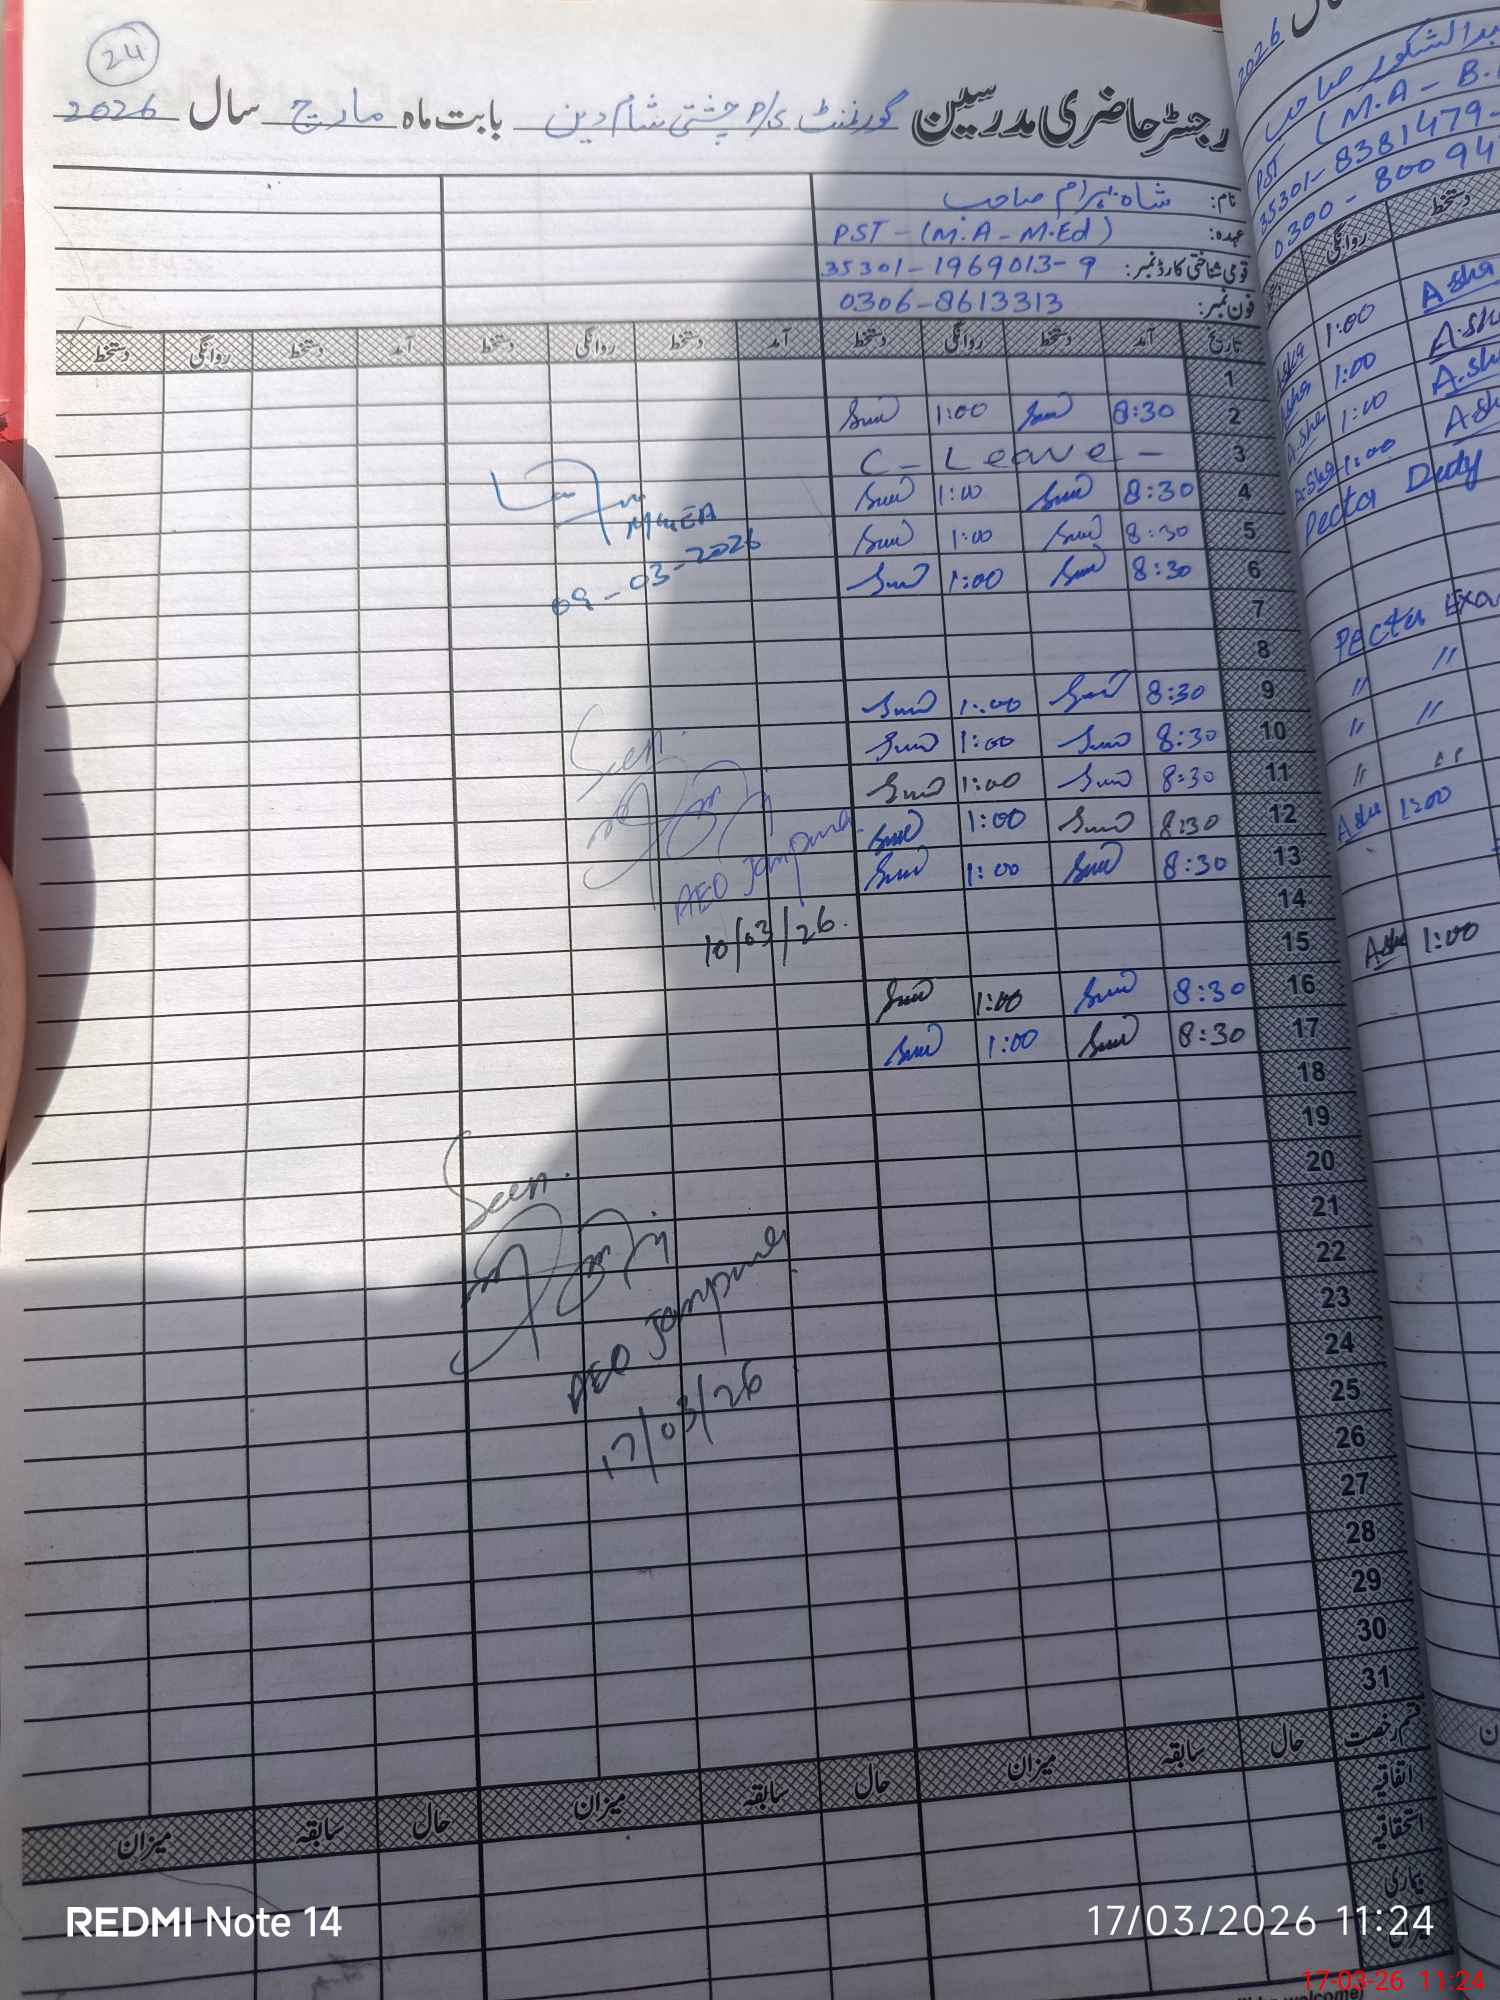 24
رجسٹر حاضری مدرسین گورنمنٹ P/S چشتی شام دین بابت ماہ مارچ سال 2026
نام: شاہ بہرام صاحب
عہدہ: PST - (M.A - M.Ed)
قومی شناختی کارڈ نمبر: 35301-1969013-9
فون نمبر: 0306-8613313
تاریخ آمد دستخط روانگی دستخط آمد دستخط روانگی دستخط آمد دستخط روانگی دستخط
1
2 8:30 1:00
3 C - Leave -
4 8:30 1:00
5 8:30 1:00
6 8:30 1:00
7
8
9 8:30 1:00
10 8:30 1:00
11 8:30 1:00
12 8:30 1:00
13 8:30 1:00
14
15
16 8:30 1:00
17 8:30 1:00
18
19
20
21
22
23
24
25
26
27
28
29
30
31
09-03-2026
Seen.
AEO Jampura
10/03/26.
Seen.
AEO Jampura
17/03/26
قسم رخصت حال سابقہ میزان حال سابقہ میزان حال سابقہ میزان
اتفاقیہ
استحقاقیہ
بیماری
2026
عبدالشکور صاحب
PST (M.A - B.
35301-8381479-
0300-80094
روانگی دستخط
1:00 Asha
1:00 A.sha
1:00 A.sha
1:00 Asha
Pecta Duty
Pecta Exa
" "
" "
" "
Asha 1:00
Asha 1:00
REDMI Note 14
17/03/2026 11:24
17-03-26 11:24